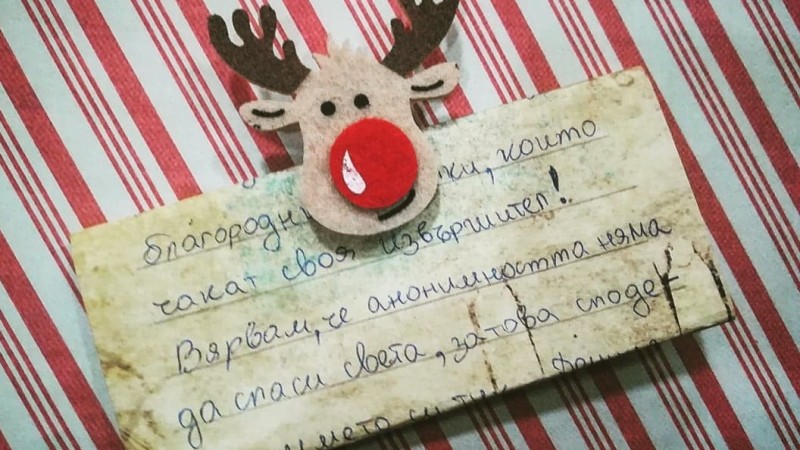 благородни ки, които
чакат своя извършител!
Вярвам, че анонимността няма
да спаси света, затова споде-
името си тук